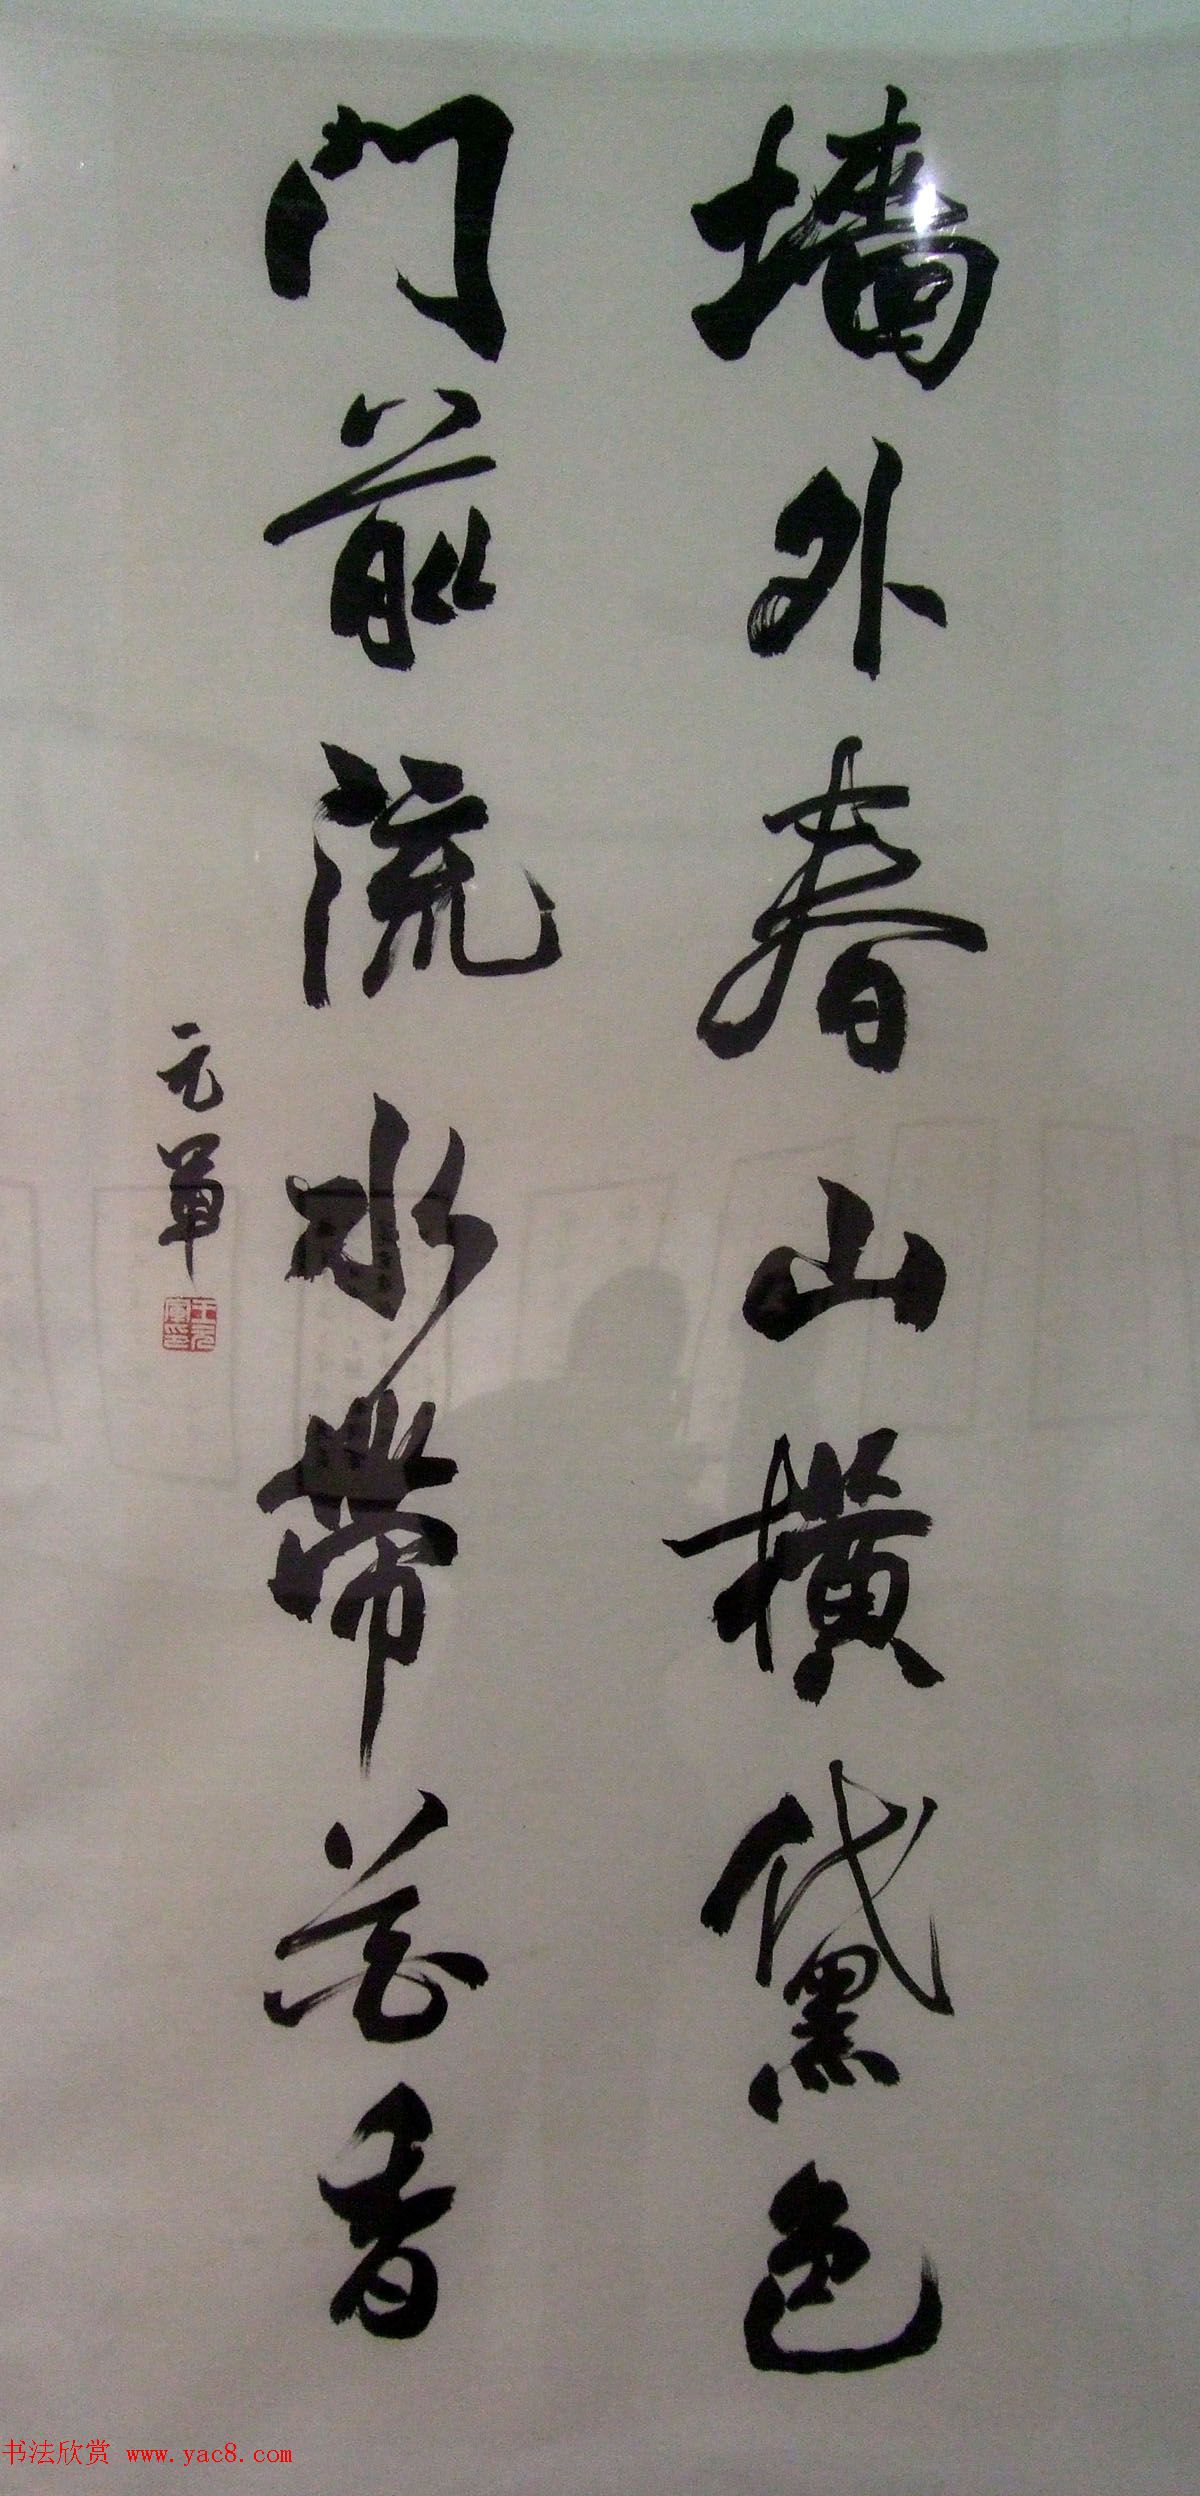 墙外春山橫黛色
门前流水带花香
元军
王元军印
书法欣赏 www.yac8.com